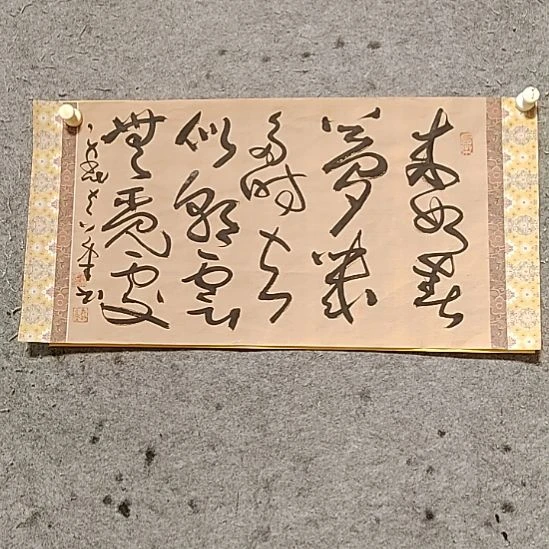 来如春
夢幾
多時去
似朝雲
無覓處